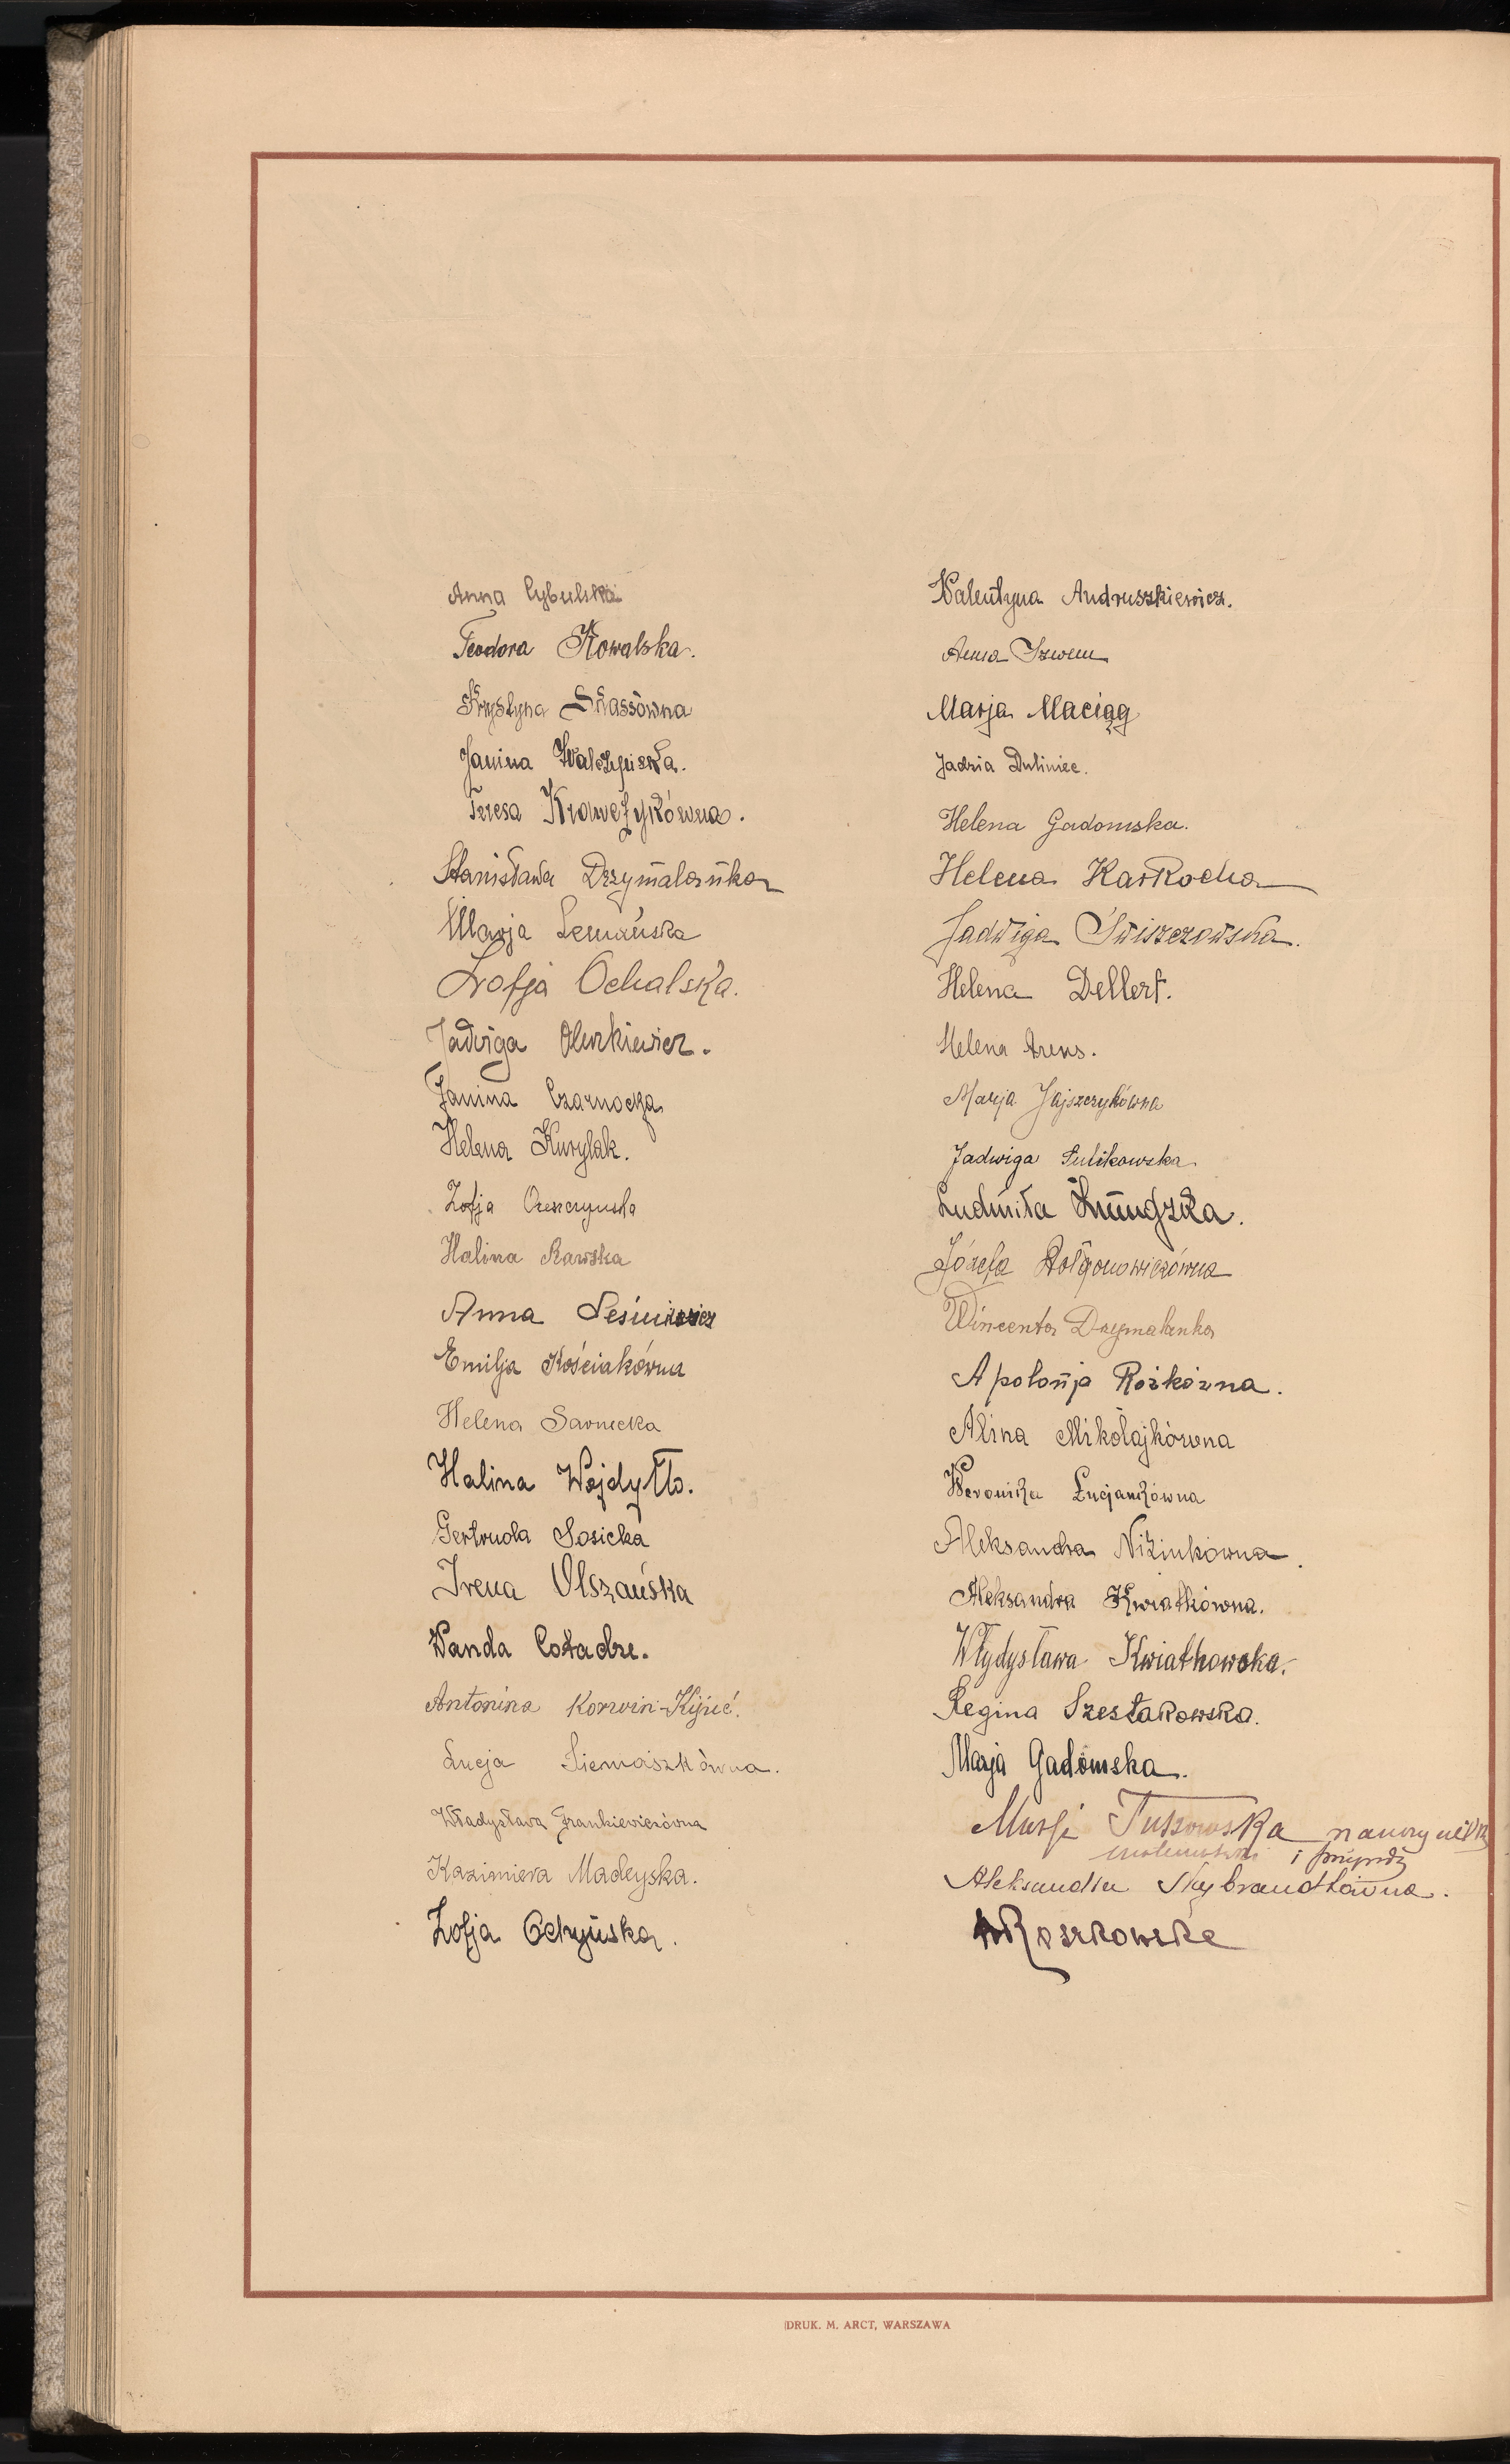 Anna Cybulska
Teodora Kowalska.
Krystyna Skassówna
Janina Walczyńska.
Teresa Krawczykówna.
Stanisława Drzymalanka
Marja Lemańska
Zofja Ochalska.
Jadwiga Olerkiewicz.
Janina Czarnocka
Helena Kurylak.
Zofja
Halina Rawska
Anna Lesiniewicz
Emilja Kościakówna
Helena Sarnecka
Halina Wojdyłło.
Gertruda Sosicka
Irena Olszańska
Wanda Cotadze.
Antonina Korwin-Kijuć.
Lucja Siemaszkówna.
Władysława Frankiewiczówna
Kazimiera Madeyska.
Zofja Ochyńska.
Walentyna Andruszkiewicz.
Anna Szwem
Marja Maciąg
Jadzia Duliniec.
Helena Gadomska.
Helena Karkocha
Jadwiga Świszczowska.
Helena Dellert.
Helena Arens.
Marja Jajszczykówna
Jadwiga Sulikowska
Ludmiła
Józefa Dołgonowiczówna
Wincenta Drzymalanka
Apolonja Rożkówna.
Alina Mikołajkówna
Weronika Łucjankówna
Aleksandra Niżinkówna.
Aleksandra Kwiatkówna.
Włydysława Kwiatkowska.
Regina Szestakowska.
Marja Gadomska.
Marja Tuszowska nauczycielka
matematyki i przyrody
Aleksandra Skybrandtówna.
Roszkowska
DRUK. M. ARCT, WARSZAWA